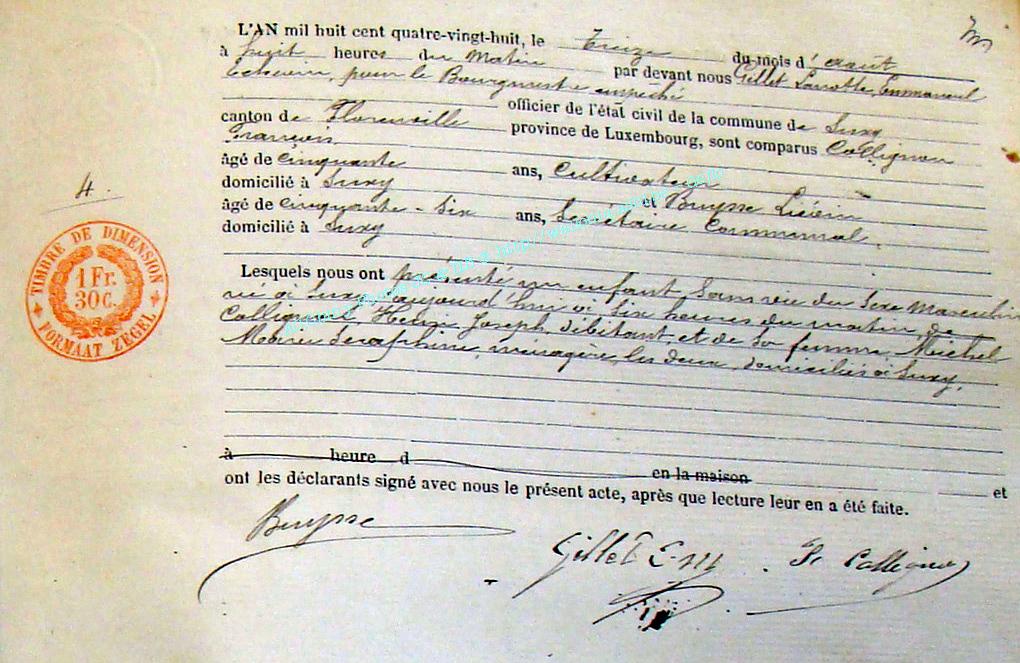 L'AN mil huit cent quatre-vingt-huit, le Treize du mois d'août
à huit heures du Matin par devant nous Gillet Lamotte, Emmanuel
Echevin, pour le Bourgmestre empêché
officier de l'état civil de la commune de Suxy
canton de Florenville province de Luxembourg, sont comparus Collignon
François
âgé de Cinquante ans, Cultivateur
domicilié à Suxy et Buysse Liévin
âgé de Cinquante-Six ans, Secrétaire Communal,
domicilié à Suxy
4.
TIMBRE DE DIMENSION
1 Fr.
30 C.
FORMAAT ZEGEL
Lesquels nous ont présenté un enfant Sans vie du Sexe Masculin
né à Suxy aujourd'hui à Six heures du matin de
Collignon, Henri Joseph, débitant, et de Sa femme, Michel
Marie Seraphine, ménagère, les deux domiciliés à Suxy.
à heure d en la maison et
ont les déclarants signé avec nous le présent acte, après que lecture leur en a été faite.
Buysse
Gillet E-M
Fs Collignon